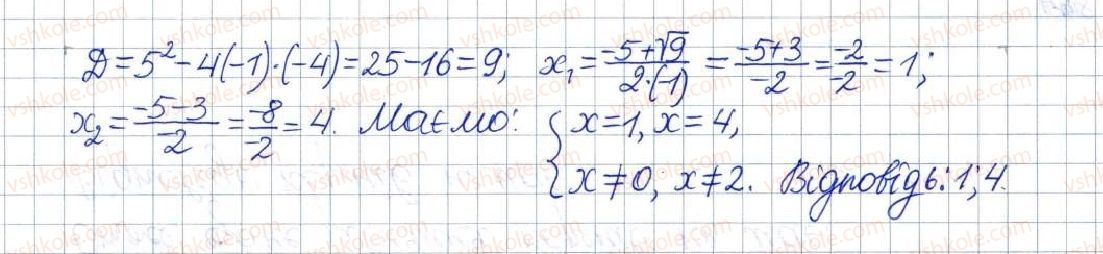 D = 5² - 4(-1)·(-4) = 25 - 16 = 9; x₁ = (-5+√9)/(2·(-1)) = (-5+3)/(-2) = (-2)/(-2) = 1;
x₂ = (-5-3)/(-2) = (-8)/(-2) = 4. Маємо: { x = 1, x = 4,
x ≠ 0, x ≠ 2. Відповідь: 1; 4.
vshkole.com